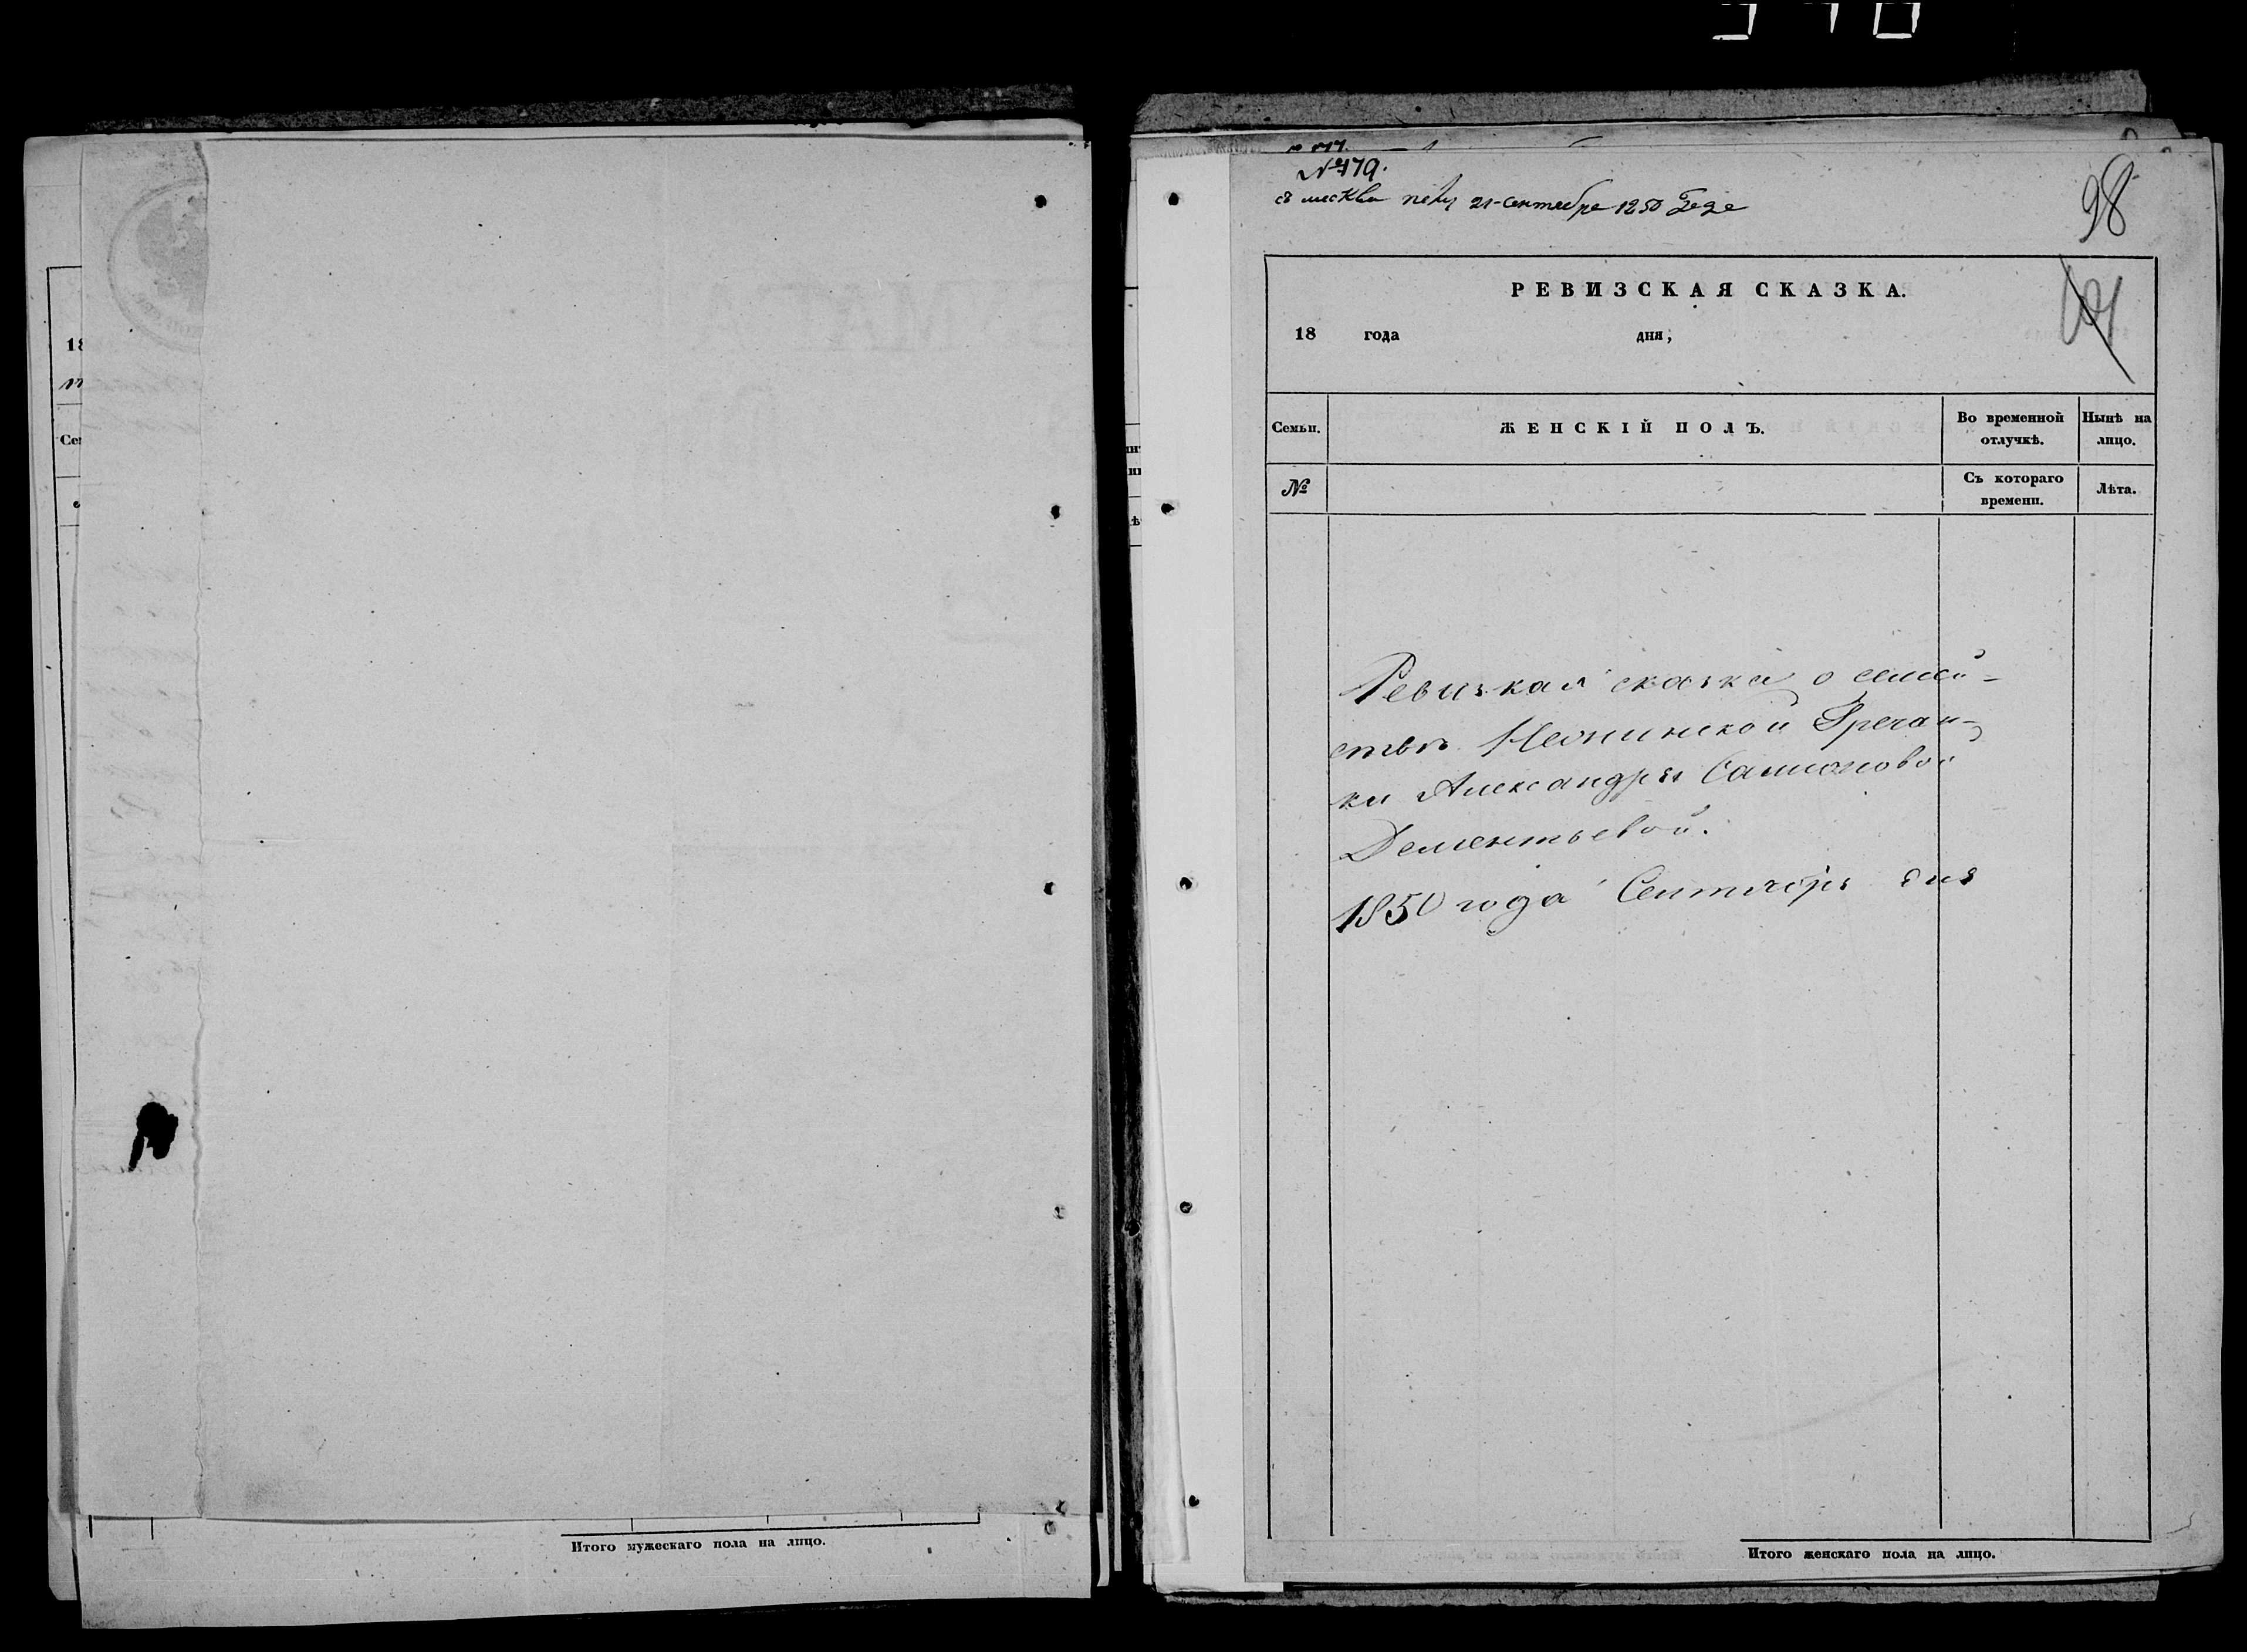 Итого мужескаго пола на лицо.
№ 179.
21 сентебре 1850
98
РЕВИЗСКАЯ СКАЗКА.
18 года дня;
Семьи. ЖЕНСКІЙ ПОЛЪ. Во временной отлучкѣ. Нынѣ на лицо.
№ Съ котораго времени. Лѣта.
Ревизкая сказка о семей-
ствѣ Нежинской Гречан-
ки Александры Самсоновой
Дементьевой.
1850 года Сентября дня
Итого женскаго пола на лицо.